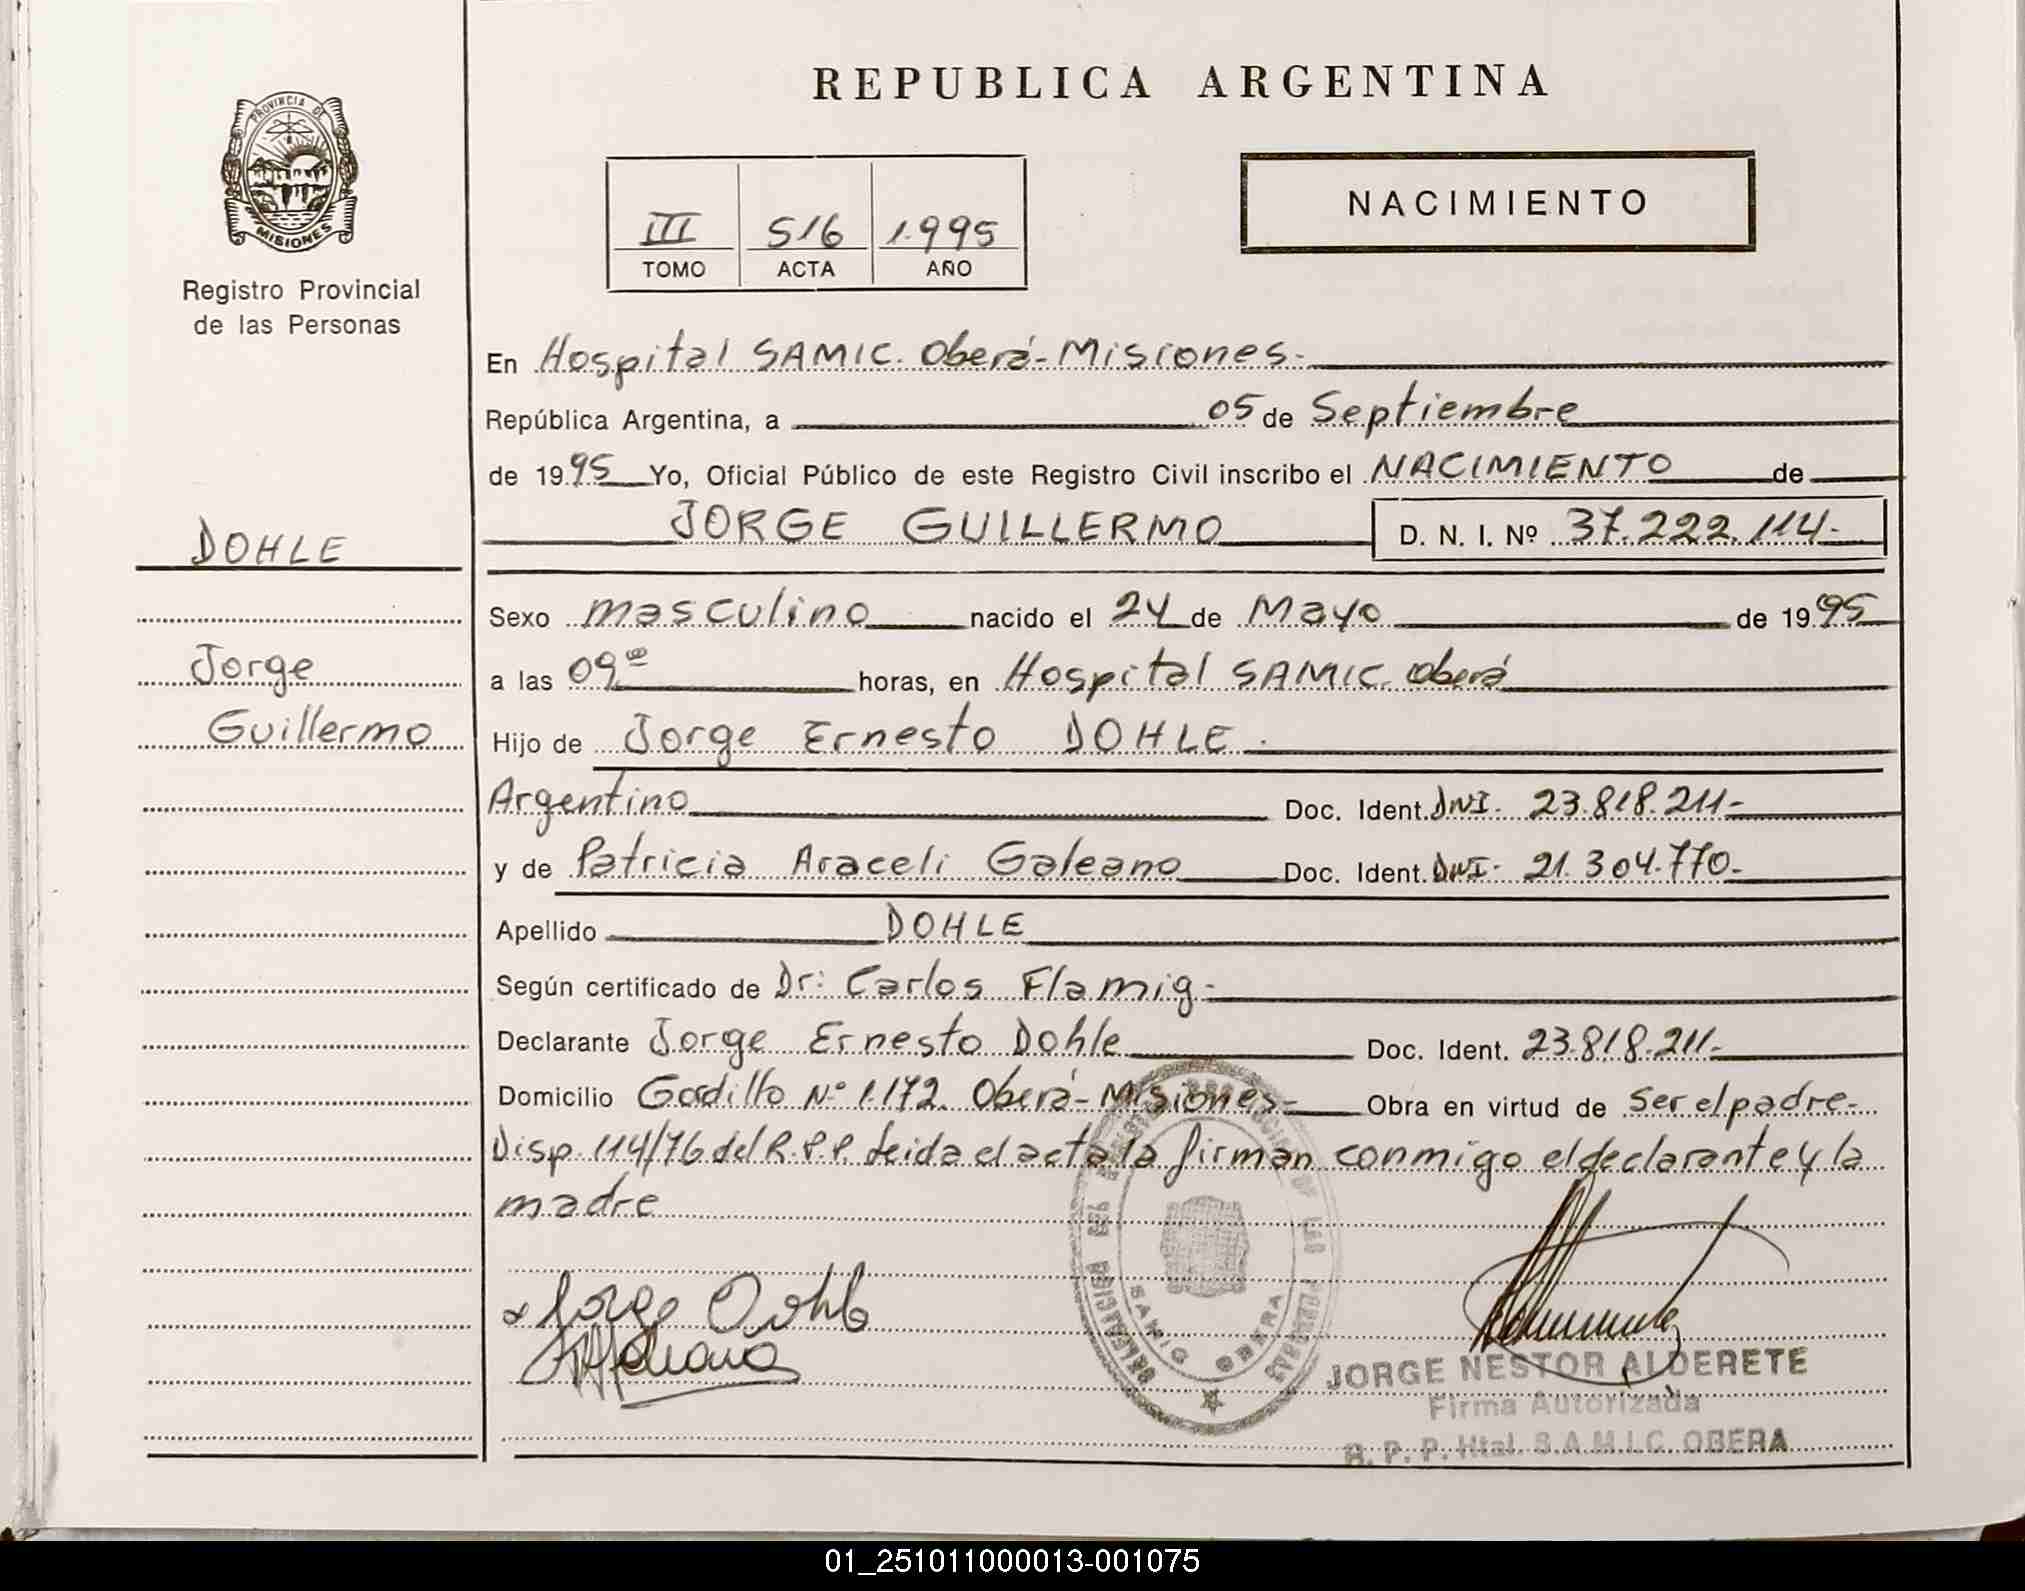 REPUBLICA ARGENTINA
PROVINCIA DE
MISIONES
Registro Provincial
de las Personas
NACIMIENTO
III 516 1.995
TOMO ACTA AÑO
En Hospital SAMIC. Oberá-Misiones-
República Argentina, a 05 de Septiembre
de 1995 Yo, Oficial Público de este Registro Civil inscribo el NACIMIENTO de
JORGE GUILLERMO D. N. I. Nº 37.222.114-
DOHLE
Jorge
Guillermo
Sexo masculino nacido el 24 de Mayo de 1995
a las 09,00 horas, en Hospital SAMIC. Oberá
Hijo de Jorge Ernesto DOHLE.
Argentino Doc. Ident. DNI. 23.818.211-
y de Patricia Araceli Galeano Doc. Ident. DNI- 21.304.770-
Apellido DOHLE
Según certificado de Dr: Carlos Flamig-
Declarante Jorge Ernesto Dohle Doc. Ident. 23.818.211-
Domicilio Gordillo Nº 1.172. Oberá-Misiones- Obra en virtud de ser el padre-
Disp. 114/76 del R.P.P. Leida el acta la firman conmigo el declarante y la
madre
Jorge Dohle
SAMIC OBERA
JORGE NESTOR ALDERETE
Firma Autorizada
R. P. P. Htal. S.A.M.I.C. OBERA
01_251011000013-001075